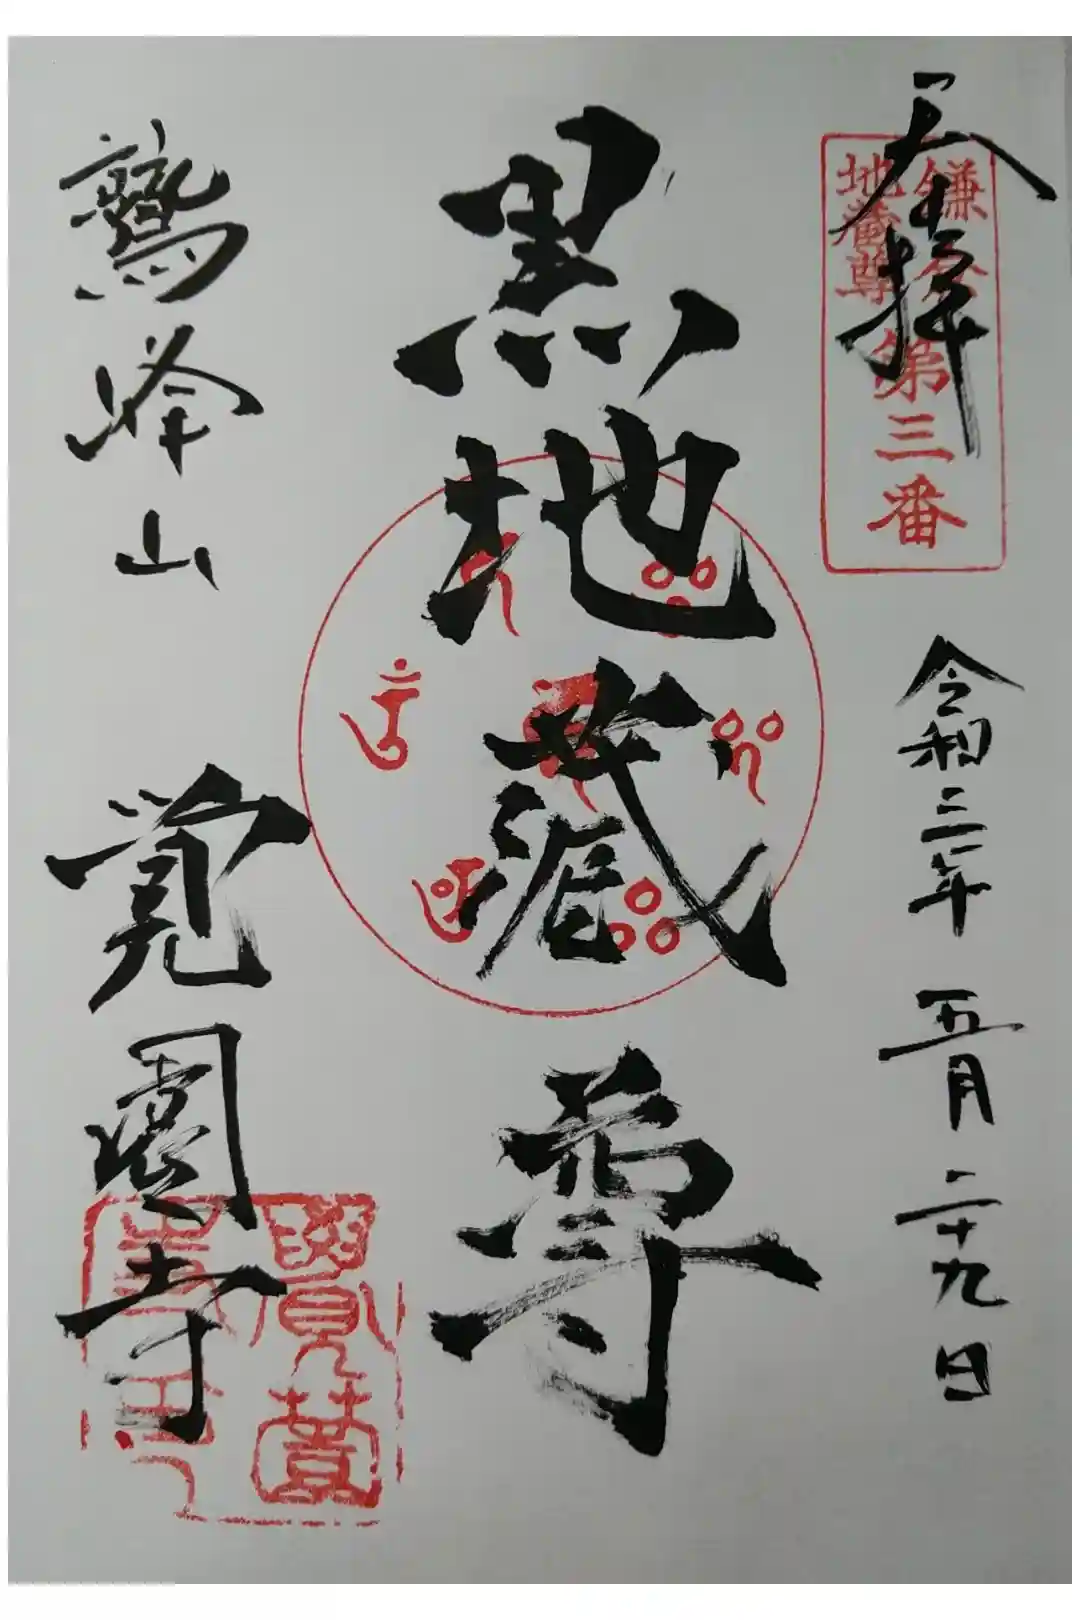 奉拝
鎌倉
地蔵尊
第三番
令和三年 五月 二十九日
黒地蔵尊
鷲峰山 覚園寺